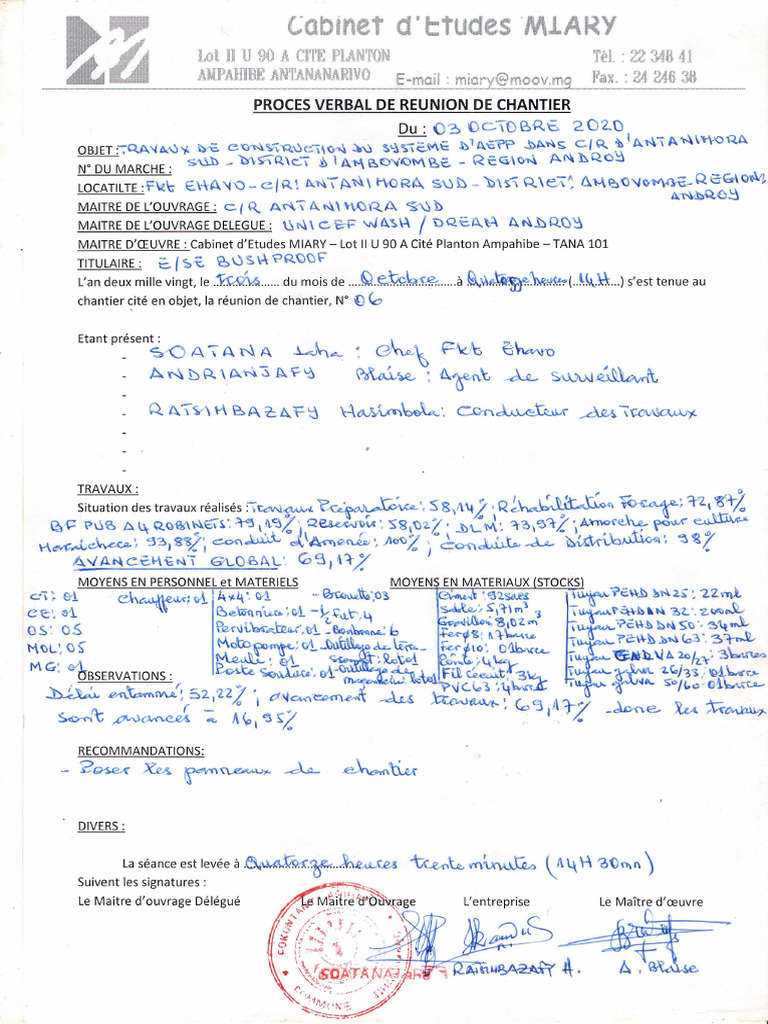 Cabinet d'Etudes MIARY
Lot II U 90 A CITE PLANTON
AMPAHIBE ANTANANARIVO
E-mail : miary@moov.mg
Tél. : 22 348 41
Fax. : 24 246 38
PROCES VERBAL DE REUNION DE CHANTIER
Du : 03 OCTOBRE 2020
OBJET : TRAVAUX DE CONSTRUCTION DU SYSTÈME D'AEPP DANS C/R D'ANTANIMORA
SUD - DISTRICT D'AMBOVOMBE - REGION ANDROY
N° DU MARCHE :
LOCATILTE : FKt EHAVO - C/R: ANTANIMORA SUD - DISTRICT: AMBOVOMBE - REGION:
ANDROY
MAITRE DE L'OUVRAGE : C/R ANTANIMORA SUD
MAITRE DE L'OUVRAGE DELEGUE : UNICEF WASH / DREAM ANDROY
MAITRE D'ŒUVRE : Cabinet d'Etudes MIARY – Lot II U 90 A Cité Planton Ampahibe – TANA 101
TITULAIRE : E/SE BUSHPROOF
L'an deux mille vingt, le trois du mois de Octobre à Quatorze heures (14H) s'est tenue au
chantier cité en objet, la réunion de chantier, N° 06
Etant présent :
- SOATANA : Chef Fkt Ehavo
- ANDRIANJAFY Blaise : Agent de surveillant
-
- RATSIMBAZAFY Hasimbola : Conducteur des Travaux
-
-
-
TRAVAUX :
Situation des travaux réalisés : Travaux Préparatoire : 58,14% ; Réhabilitation Forage : 72,87%
BF PUB A 4 ROBINETS : 79,19% ; Réservoir : 58,02% ; DLM : 73,97% ; Amorche pour culture
Maraichere : 93,88% ; conduit d'Amenée : 100% ; Conduite de Distribution : 98%
AVANCEMENT GLOBAL : 69,17%
MOYENS EN PERSONNEL et MATERIELS
CT : 01 Chauffeur : 01
CE : 01
OS : 05
MOL : 05
MG : 01
4x4 : 01 - Brouette : 03
Betonnière : 01 - 1/2 Fut : 4
Pervibrateur : 01 - Bonbonne : 6
Motopompe : 01 - Outillage de
Meule : 01 lot 01
Poste Soudure : 01 - Outillage de
lot 01
MOYENS EN MATERIAUX (STOCKS)
Ciment : 92 sacs
Sable : 5,71m3
Gravillon : 8,02m3
Fer ø8 : 17 barre
Fer ø10 : 01 barre
Pointe : 4 kg
Fil recuit : 3kg
PVC 63 : 4 barres
Tuyau PEHD DN 25 : 22 ml
Tuyau PEHD DN 32 : 200 ml
Tuyau PEHD DN 50 : 34 ml
Tuyau PEHD DN 63 : 37 ml
Tuyau GALVA 20/27 : 3 barres
Tuyau galva 26/33 : 01 barre
Tuyau galva 50/60 : 01 barre
OBSERVATIONS :
Délai entammé : 52,22% ; avancement des travaux : 69,17% donc les travaux
sont avancés à 16,95%
RECOMMANDATIONS:
- Poser les panneaux de chantier
DIVERS :
La séance est levée à Quatorze heures trente minutes (14H 30mn)
Suivent les signatures :
Le Maitre d'ouvrage Délégué Le Maitre d'Ouvrage L'entreprise Le Maître d'œuvre
FOKONTANY
SOATANA
COMMUNE
RATSIMBAZAFY H.
A. Blaise